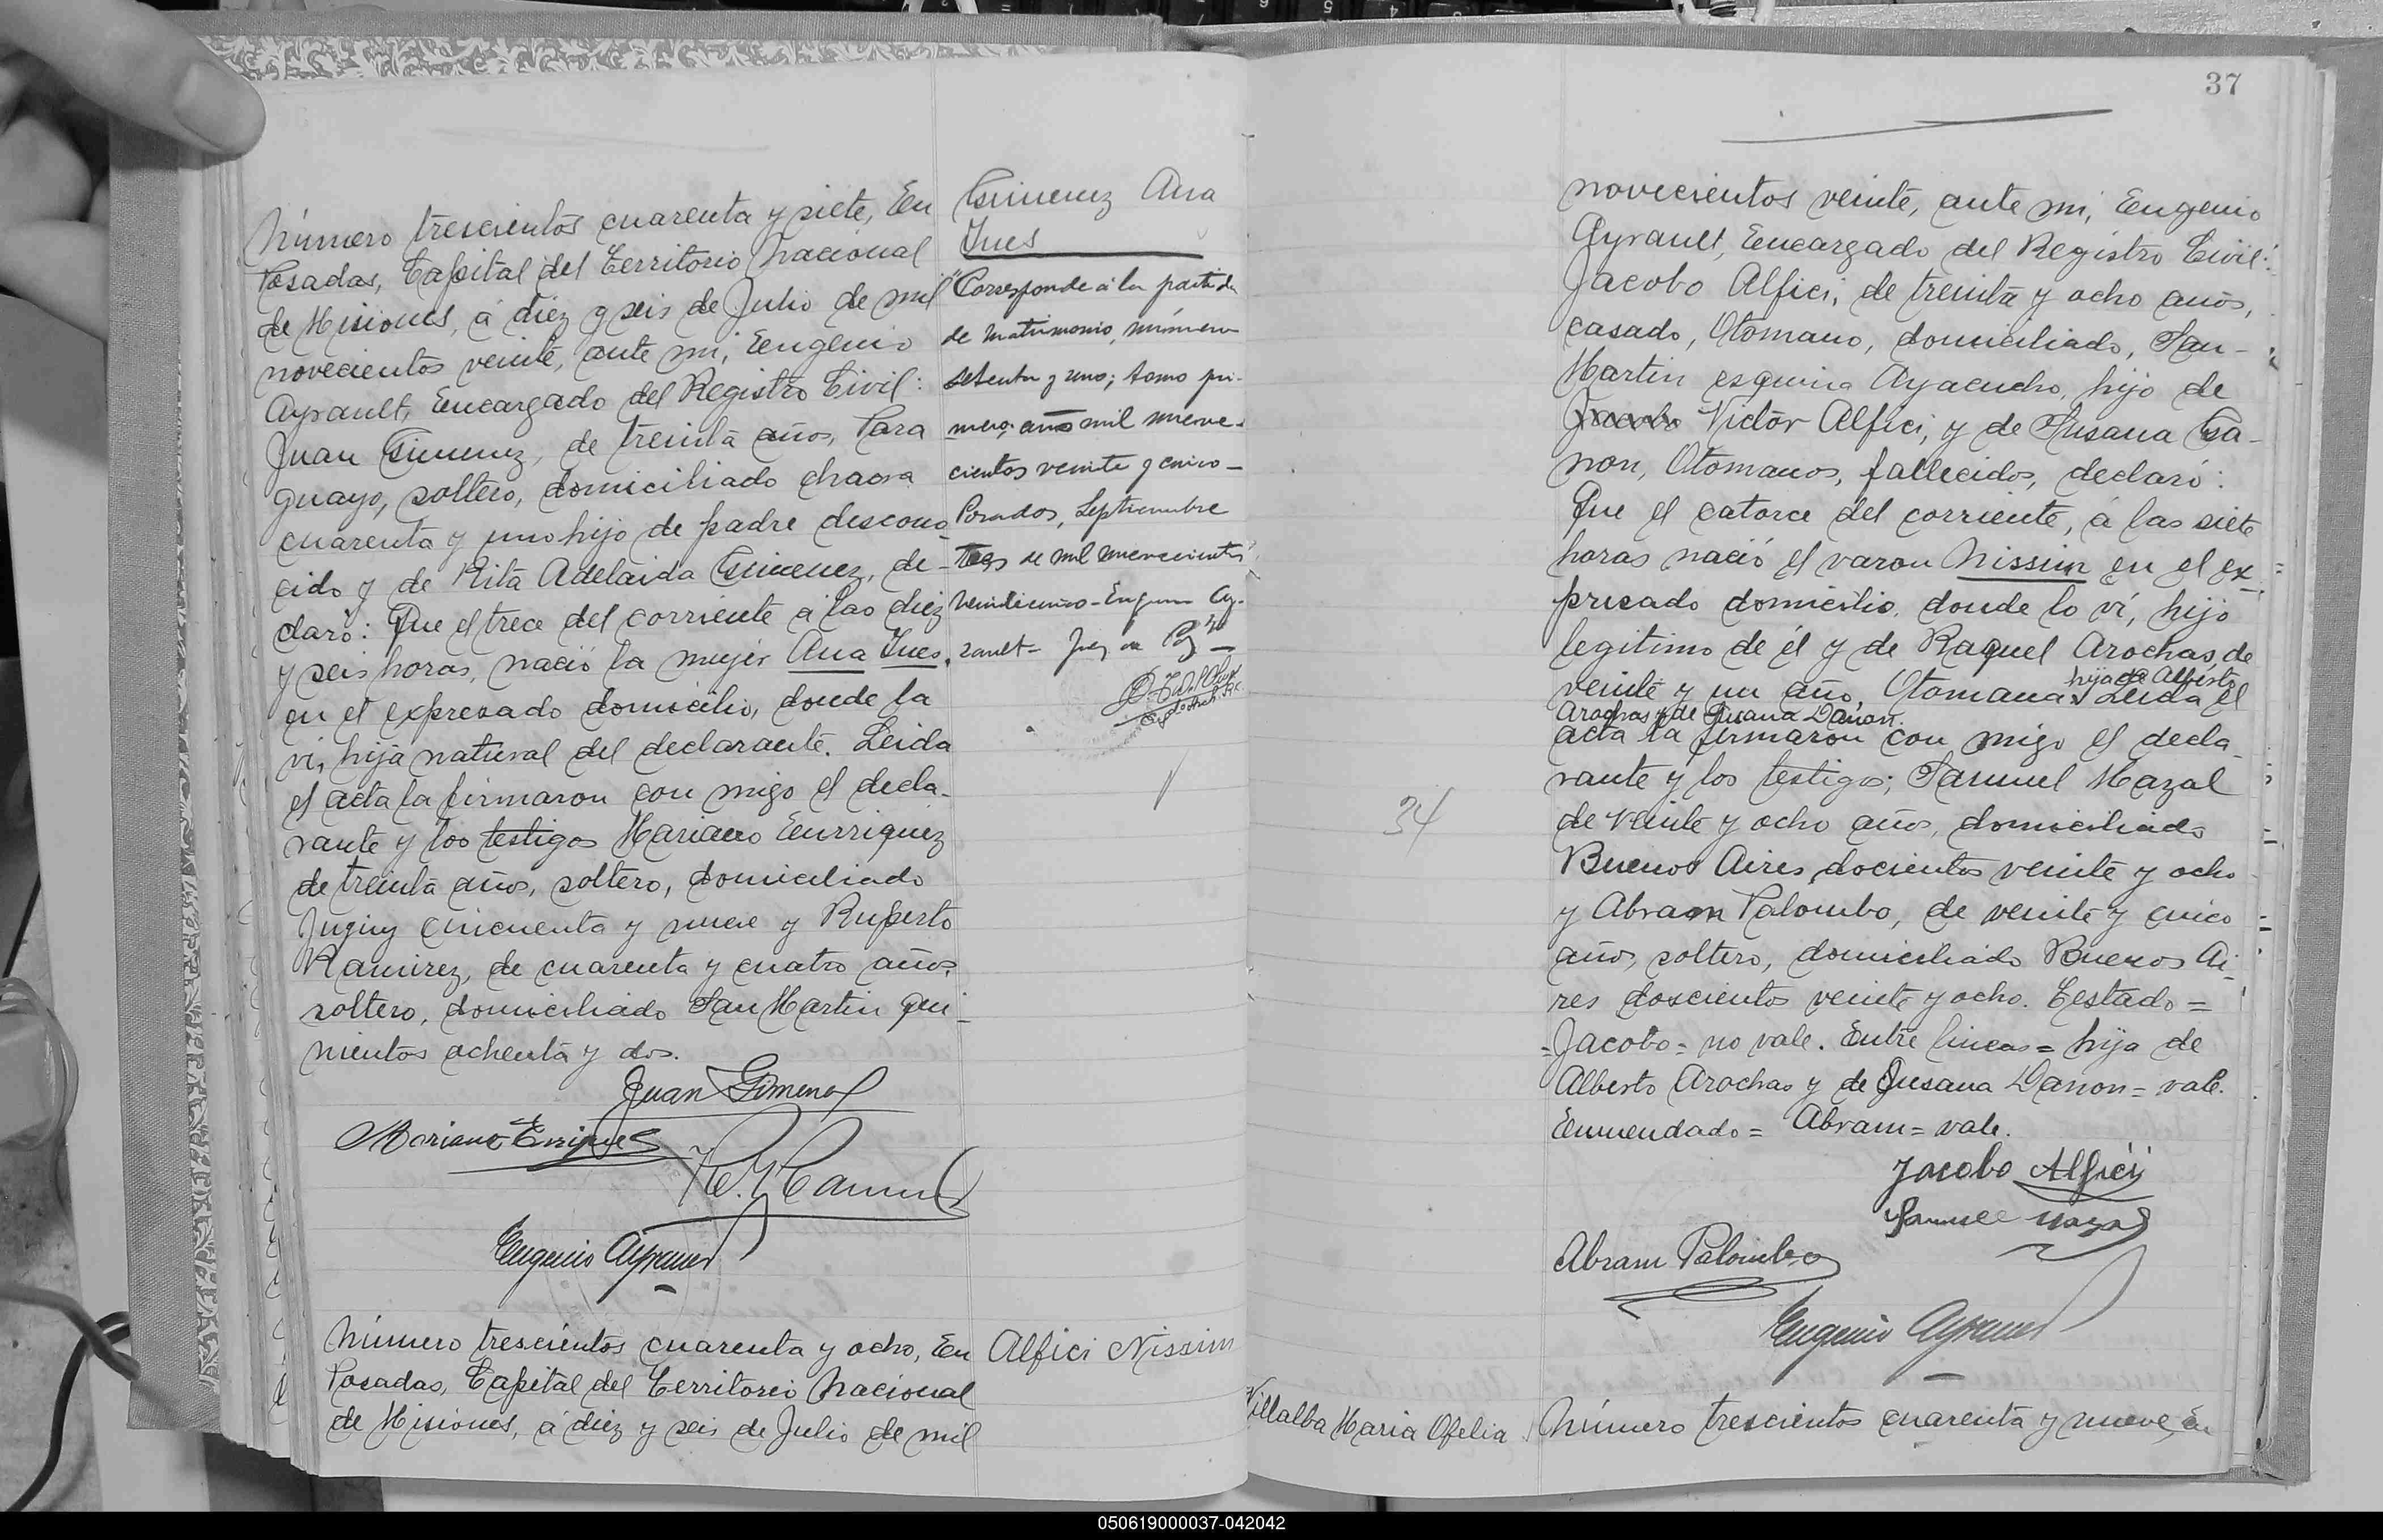 Número trescientos cuarenta y siete, En
Posadas, Capital del Territorio Nacional
de Misiones, á diez y seis de Julio de mil
novecientos veinte, ante mi, Eugenio
Ayrault, Encargado del Registro Civil:
Juan Gimenez, de treinta años, Para
guayo, soltero, domiciliado chacra
cuarenta y uno hijo de padre descono
cido y de Rita Adelaida Gimenez, de-
claró: Que el trece del corriente á las diez
y seis horas, nació la mujer Ana Ines,
en el expresado domicilio, donde la
ví, hija natural del declarante. Leida
el acta la firmaron con migo el decla-
rante y los testigos Mariano Enrriquez
de treinta años, soltero, domiciliado
Jujuy cincuenta y nueve y Ruperto
Ramirez, de cuarenta y cuatro años,
soltero, domiciliado San Martin qui-
nientos ochenta y dos.
Juan Gimenez
Mariano Enriques
R. Ramirez
Eugenio Ayrault
Gimenez Ana
Ines
"Corresponde á la partida
de matrimonio, número
setenta y uno; tomo pri-
mero, año mil nueve-
cientos veinte y cinco-
Posadas, Septiembre
tres de mil novecientos
veinticinco-Eugenio Ay-
rault- Juez de Paz
Número trescientos cuarenta y ocho, En
Posadas, Capital del Territorio Nacional
de Misiones, á diez y seis de Julio de mil
Alfici Nissim
37
novecientos veinte, ante mi, Eugenio
Ayrault, Encargado del Registro Civil:
Jacobo Alfici, de treinta y ocho años,
casado, Otomano, domiciliado, San-
Martin esquina Ayacucho, hijo de
Jacobo Victor Alfici, y de Susana Ga-
non, Otomanos, fallecidos, declaró:
Que el catorce del corriente, á las siete
horas nació el varon Nissim en el ex-
presado domicilio, donde lo ví, hijo
legitimo de él y de Raquel Arochas, de
hija de Alberto
veinte y un año, Otomana. Leida el
Arochas y de Susana Danon.
acta la firmaron con migo el decla-
rante y los testigos; Samuel Mazal
de veinte y ocho años, domiciliado
Buenos Aires docientos veinte y ocho
y Abram Palombo, de veinte y cinco
años, soltero, domiciliado Buenos Ai-
res doscientos veinte y ocho. Testado=
=Jacobo= no vale. Entre lineas= hija de
Alberto Arochas y de Susana Danon= vale.
Enmendado= Abram= vale.
Jacobo Alfici
Samuel Mazal
Abram Palombo
Eugenio Ayrault
34
Villalba Maria Ofelia
Número trescientos cuarenta y nueve, En
050619000037-042042